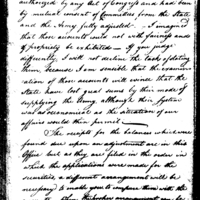 authorized by any Act of Congress and had been
by mutual consent of Committees from the State
and the Army fully adjusted. I imagined
that those accounts could not with fairness and
propriety be exhibited — If you judge
differently, I will not decline the task of stating
them, because I am sensible that the examin-
ation of those accounts will evince that the
State have lost great sums by their mode of
supplying the Army, although their system
was as oeconomical as the situation of our
affairs would then permit —
The receipts for the balances which were
found due upon an adjustment are in this
Office but as they are filed in the order in
which the applications were made for the
securities, a different arrangement will be
necessary to enable you to compare them with the
arrangement can be